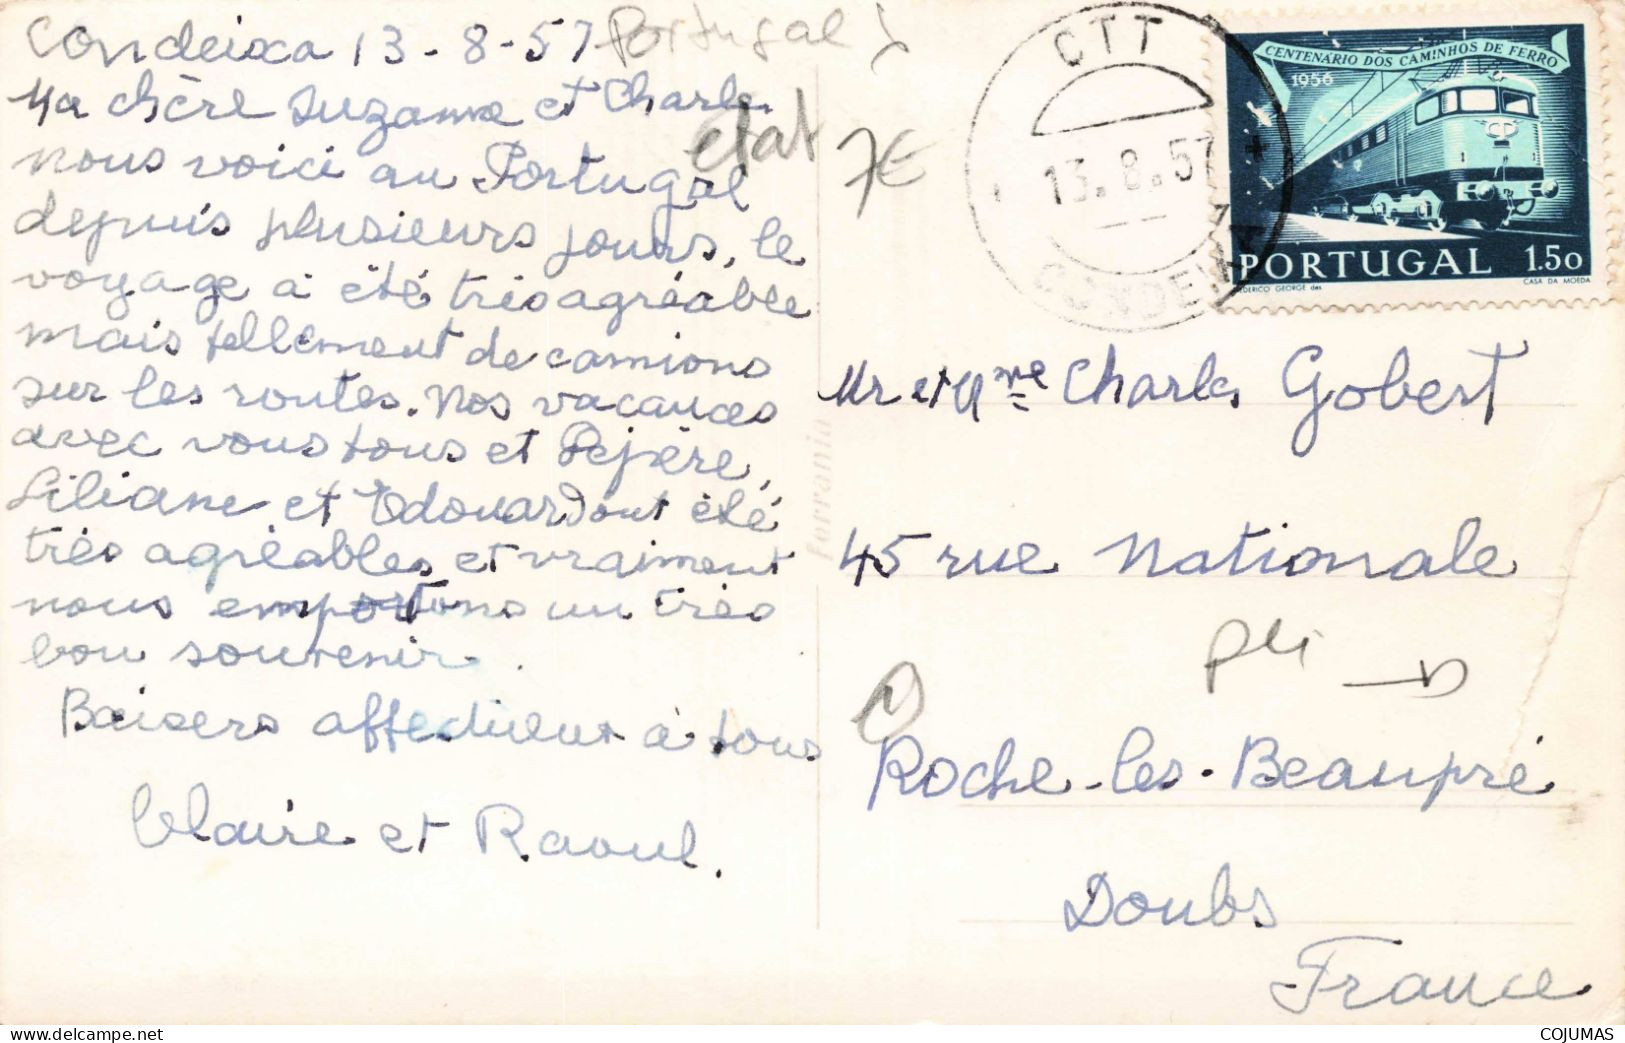 Condeixa 13-8-57 Portugal
Ma chère Suzanne et Charles
nous voici au Portugal
depuis plusieurs jours, le
voyage a été très agréable
mais tellement de camions
sur les routes. Nos vacances
avec vous tous et Pépère,
Liliane et Edouard ont été
très agréables et vraiment
nous emportons un très
bon souvenir.
Baisers affectueux à tous
Claire et Raoul.
etat
7€
CTT
13.8.57
CONDEIXA
CENTENÁRIO DOS CAMINHOS DE FERRO
1956
PORTUGAL 1.50
FREDERICO GEORGE des
CASA DA MOEDA
Ferrania
Mr et Mme Charles Gobert
45 rue Nationale
pli
Roche-les-Beaupré
Doubs
France
COJUMAS